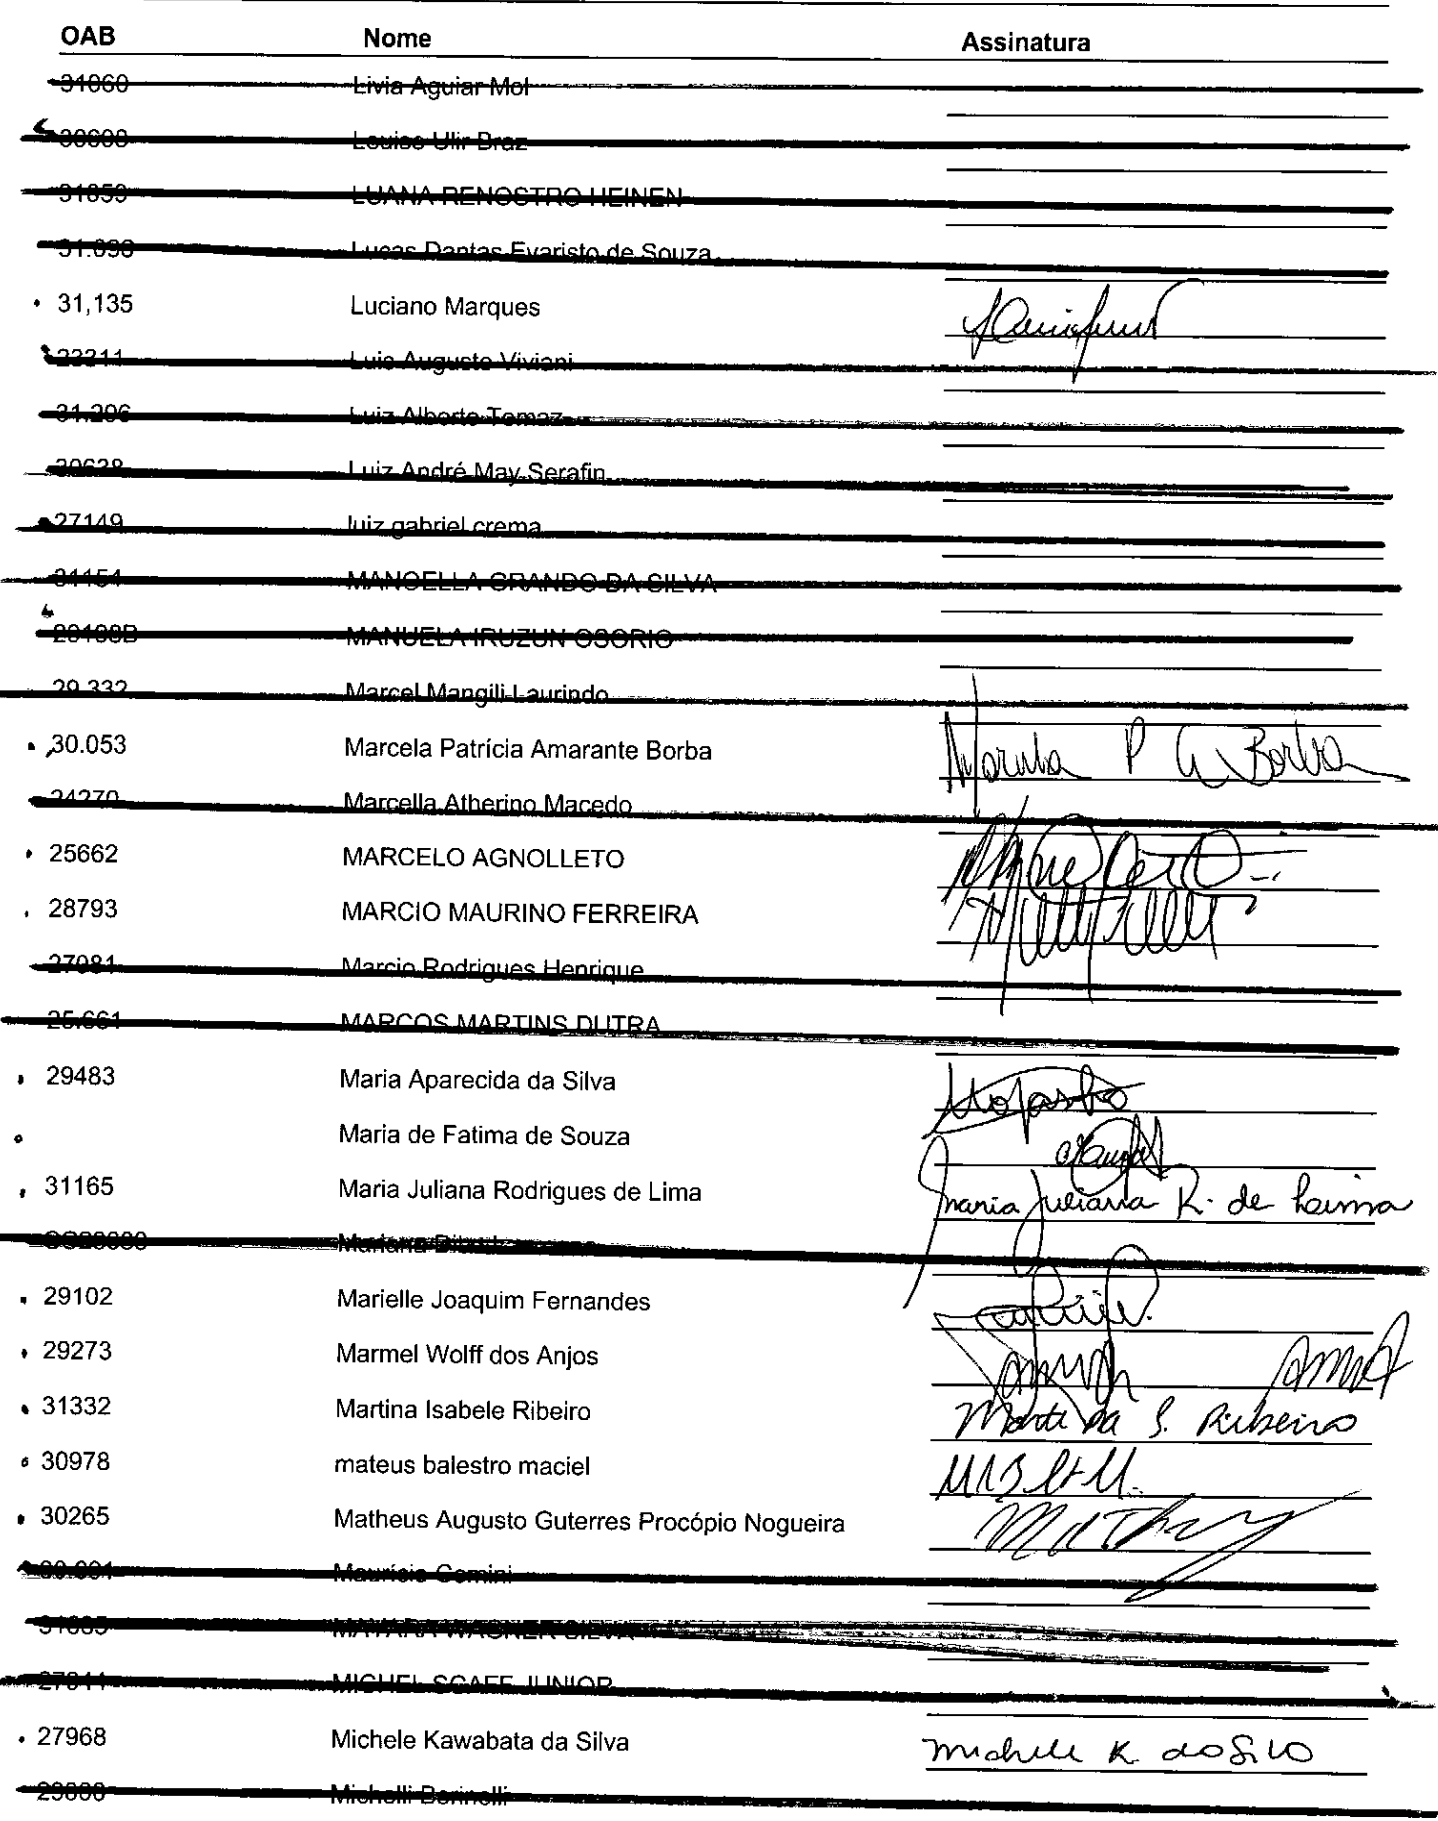 OAB Nome Assinatura
31060 Livia Aguiar Mol
Louise Ulir Braz
31859 LUANA RENOSTRO HEINEN
31.098 Lucas Dantas Evaristo de Souza
31,135 Luciano Marques
Luis Augusto Viviani
31.206 Luiz Alberto Tomaz
30638 Luiz André May Serafin
27149 luiz gabriel crema
31154 MANOELLA GRANDO DA SILVA
MANUELA IRUZUN OSORIO
29.332 Marcel Mangili Laurindo
30.053 Marcela Patrícia Amarante Borba Marcela P A Borba
24270 Marcella Atherino Macedo
25662 MARCELO AGNOLLETO
28793 MARCIO MAURINO FERREIRA
27081 Marcio Rodrigues Henrique
25.661 MARCOS MARTINS DUTRA
29483 Maria Aparecida da Silva
Maria de Fatima de Souza
31165 Maria Juliana Rodrigues de Lima Maria Juliana R. de Lima
29102 Marielle Joaquim Fernandes
29273 Marmel Wolff dos Anjos
31332 Martina Isabele Ribeiro Martina I. Ribeiro
30978 mateus balestro maciel
30265 Matheus Augusto Guterres Procópio Nogueira
Maurício Gomini
MAYARA WAGNER SILVA
MICHEL SCAFF JUNIOR
27968 Michele Kawabata da Silva Michele K da Silva
Michelli Borinelli